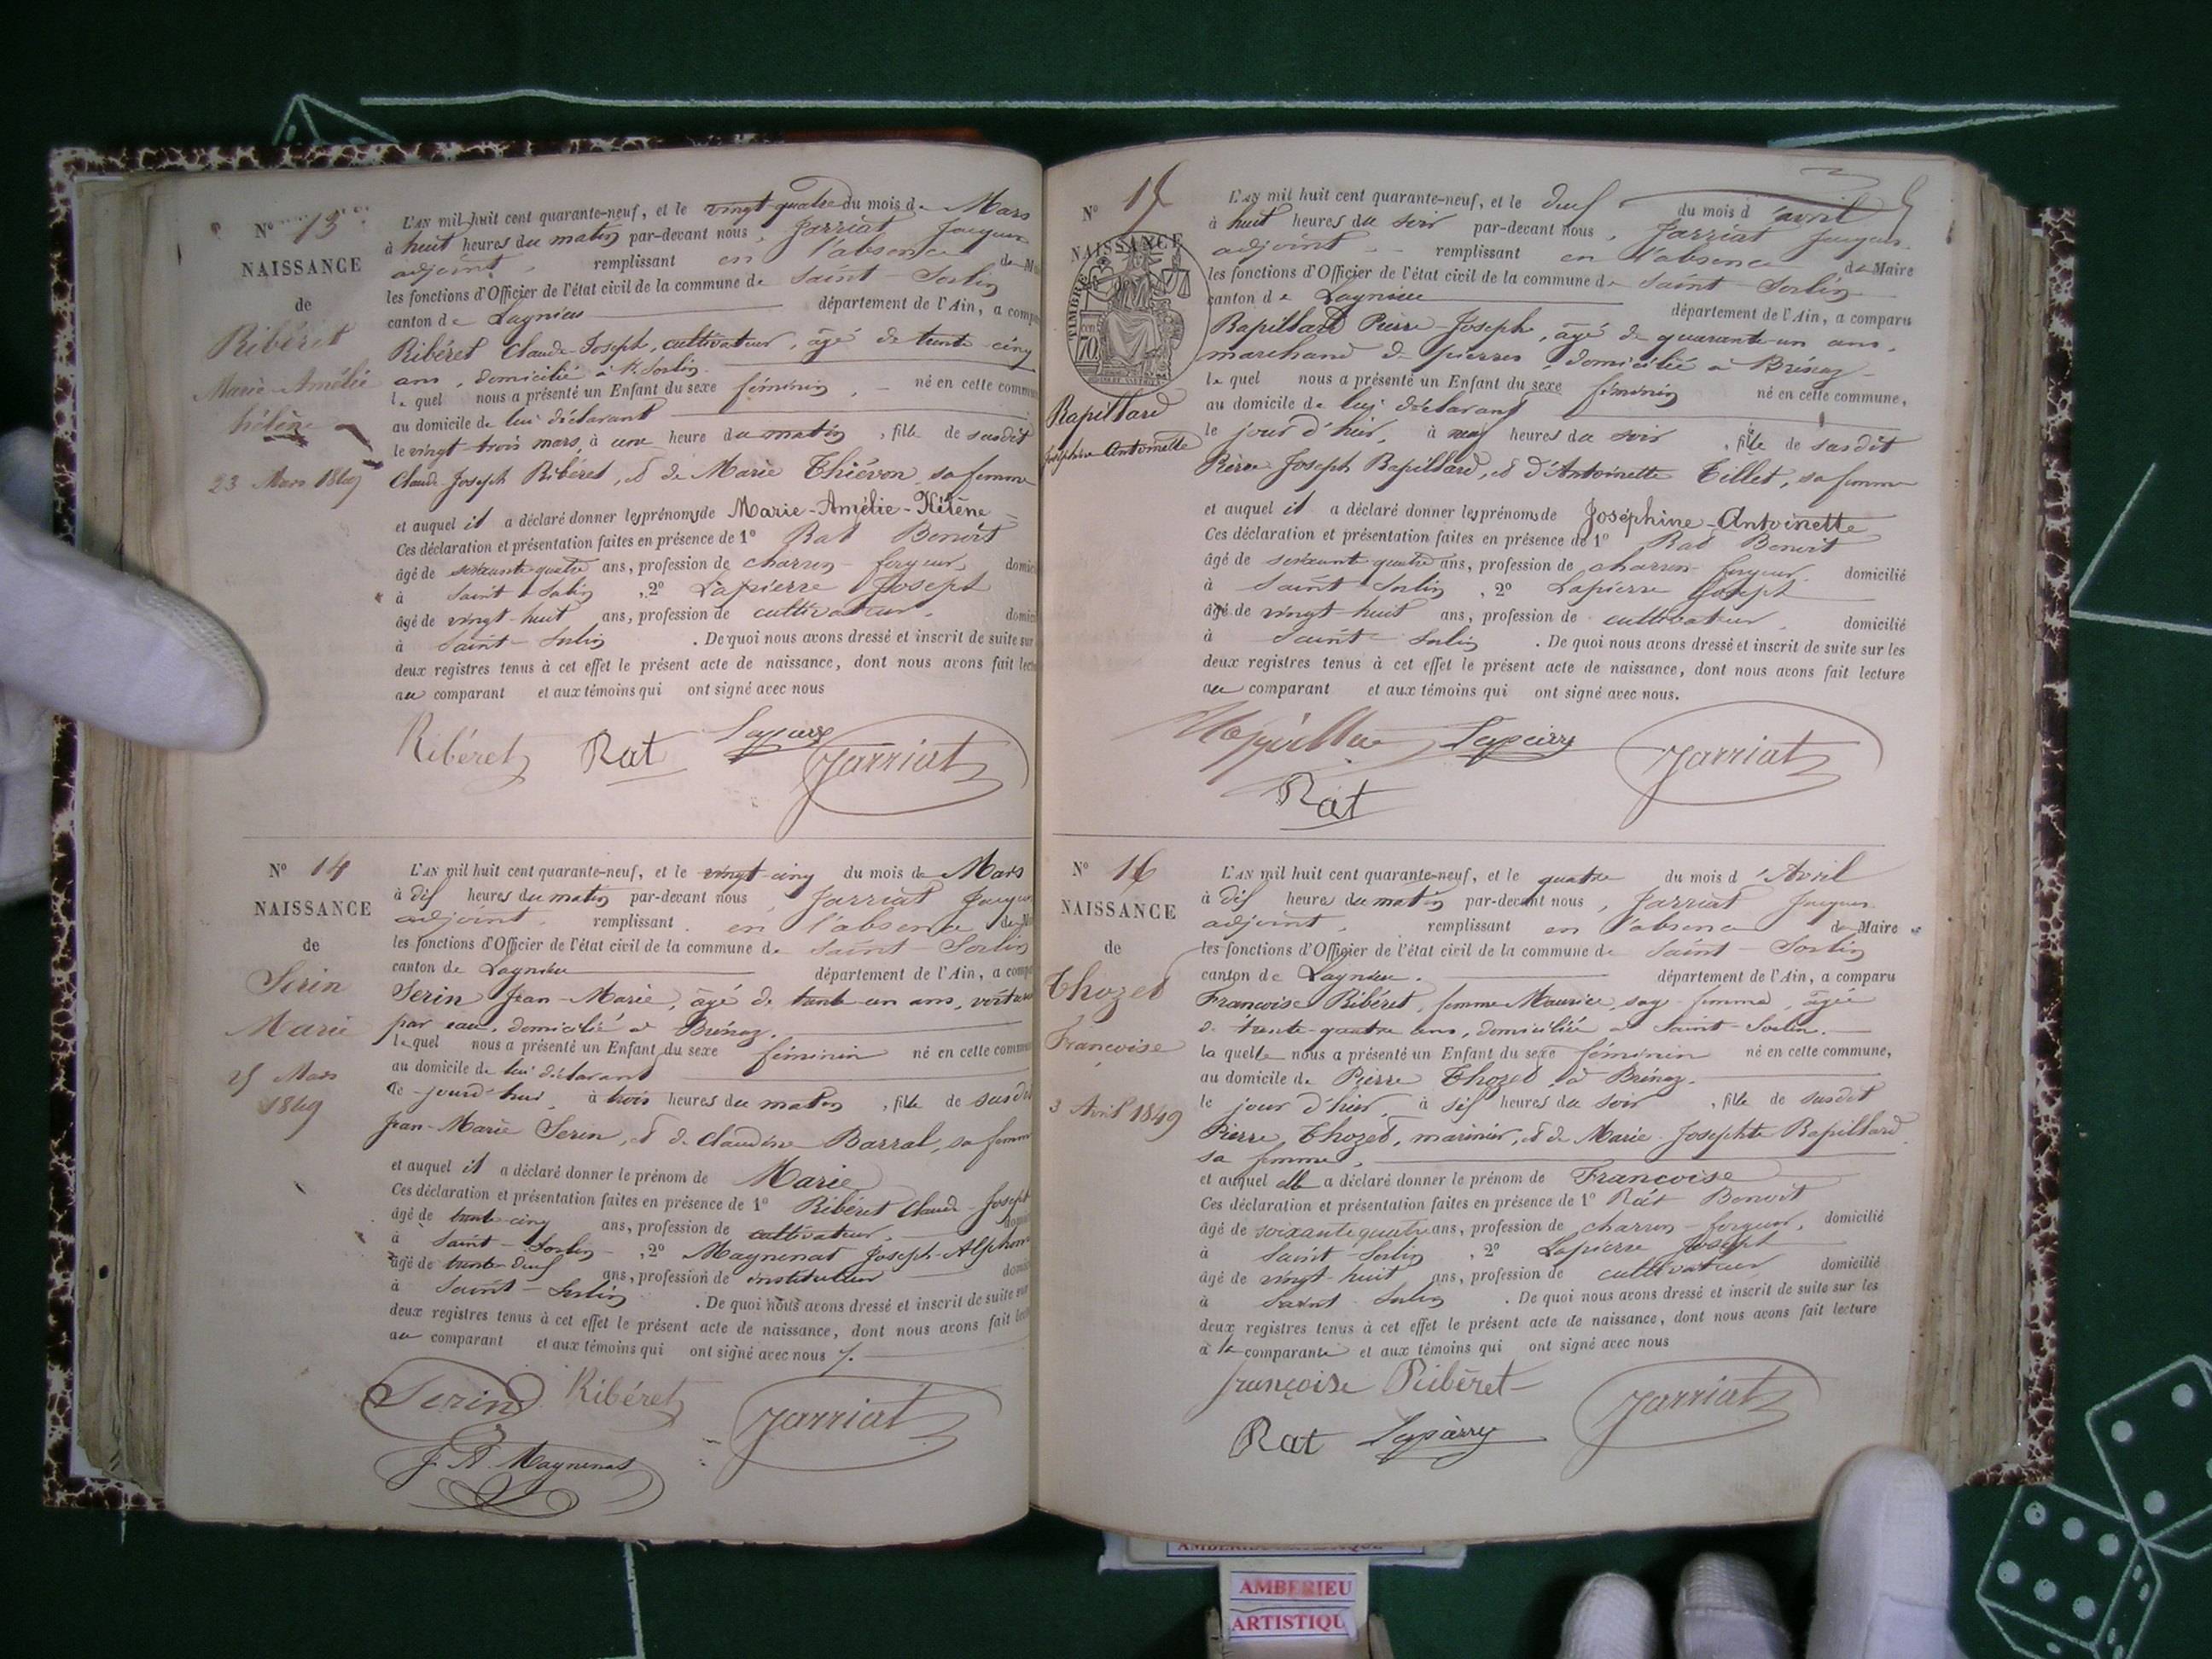 N° 13
NAISSANCE
de
Ribéret
Marie-Amélie
hélène
23 Mars 1849
L'AN mil huit cent quarante-neuf, et le vingt-quatre du mois de Mars
à huit heures du matin par-devant nous, Jarriat Jacques
adjoint, remplissant en l'absence de M
les fonctions d'Officier de l'état civil de la commune de Saint-Sorlin
canton de Lagnieu département de l'Ain, a comp
Ribéret Claude-Joseph, cultivateur, âgé de trente-cinq
ans, domicilié à St Sorlin.
lequel nous a présenté un Enfant du sexe féminin, né en cette commune
au domicile de lui déclarant
le vingt-trois mars, à une heure du matin, fille de susdit
Claude-Joseph Ribéret, et de Marie Thiévon, sa femme
et auquel il a déclaré donner les prénoms de Marie-Amélie-Hélène
Ces déclaration et présentation faites en présence de 1° Rat Benoit
âgé de soixante quatre ans, profession de charron-forgeur, domic
à Saint-Sorlin, 2° Lapierre Joseph
âgé de vingt-huit ans, profession de cultivateur, domic
à Saint-Sorlin. De quoi nous avons dressé et inscrit de suite sur
deux registres tenus à cet effet le présent acte de naissance, dont nous avons fait lect
au comparant et aux témoins qui ont signé avec nous
Ribéret Rat Lapierre Jarriat
N° 14
NAISSANCE
de
Serin
Marie
25 Mars
1849
L'AN mil huit cent quarante-neuf, et le vingt-cinq du mois de Mars
à dix heures du matin par-devant nous, Jarriat Jacques
adjoint, remplissant en l'absence de M
les fonctions d'Officier de l'état civil de la commune de Saint-Sorlin
canton de Lagnieu département de l'Ain, a comp
Serin Jean-Marie, âgé de trente-un ans, voitur
par eau, domicilié à Brénaz.
lequel nous a présenté un Enfant du sexe féminin né en cette commun
au domicile de lui déclarant
ce jourd'hui, à trois heures du matin, fille de susdit
Jean-Marie Serin, et de Claudine Barral, sa femme
et auquel il a déclaré donner le prénom de Marie
Ces déclaration et présentation faites en présence de 1° Ribéret Claude-Joseph
âgé de trente-cinq ans, profession de cultivateur, domic
à Saint-Sorlin, 2° Magnenat Joseph-Alphonse
âgé de trente-deux ans, profession de instituteur domic
à Saint-Sorlin. De quoi nous avons dressé et inscrit de suite sur
deux registres tenus à cet effet le présent acte de naissance, dont nous avons fait lect
au comparant et aux témoins qui ont signé avec nous
Serin Ribéret Jarriat
J. A. Magnenat
N° 15
NAISSANCE
TIMBRE
70
Rapillard
Joséphine Antoinette
L'AN mil huit cent quarante-neuf, et le deux du mois d'avril
à huit heures du soir par-devant nous, Jarriat Jacques
adjoint remplissant en l'absence de Maire
les fonctions d'Officier de l'état civil de la commune de Saint-Sorlin
canton de Lagnieu département de l'Ain, a comparu
Rapillard Pierre-Joseph, âgé de quarante-un ans,
marchand de pierres, domicilié à Brénaz
lequel nous a présenté un Enfant du sexe féminin né en cette commune,
au domicile de lui déclarant
le jour d'hier, à neuf heures du soir, fille de susdit
Pierre-Joseph Rapillard, et d'Antoinette Tillet, sa femme
et auquel il a déclaré donner les prénoms de Joséphine-Antoinette
Ces déclaration et présentation faites en présence de 1° Rat Benoit
âgé de soixante quatre ans, profession de charron-forgeur, domicilié
à Saint-Sorlin, 2° Lapierre Joseph
âgé de vingt-huit ans, profession de cultivateur, domicilié
à Saint-Sorlin. De quoi nous avons dressé et inscrit de suite sur les
deux registres tenus à cet effet le présent acte de naissance, dont nous avons fait lecture
au comparant et aux témoins qui ont signé avec nous.
Lapierre Jarriat
Rat
N° 16
NAISSANCE
de
Thozet
Françoise
3 Avril 1849
L'AN mil huit cent quarante-neuf, et le quatre du mois d'Avril
à dix heures du matin par-devant nous, Jarriat Jacques
adjoint, remplissant en l'absence de Maire
les fonctions d'Officier de l'état civil de la commune de Saint-Sorlin
canton de Lagnieu. département de l'Ain, a comparu
Françoise Ribéret, femme Maurice, sage-femme, âgée
de trente-quatre ans, domiciliée à Saint-Sorlin.
laquelle nous a présenté un Enfant du sexe féminin né en cette commune,
au domicile de Pierre Thozet, à Brénaz.
le jour d'hier, à six heures du soir, fille de susdit
Pierre Thozet, marinier, et de Marie Josephte Rapillard
sa femme,
et auquel elle a déclaré donner le prénom de Françoise
Ces déclaration et présentation faites en présence de 1° Rat Benoit
âgé de soixante quatre ans, profession de charron-forgeur, domicilié
à Saint-Sorlin, 2° Lapierre Joseph
âgé de vingt-huit ans, profession de cultivateur domicilié
à Saint-Sorlin. De quoi nous avons dressé et inscrit de suite sur les
deux registres tenus à cet effet le présent acte de naissance, dont nous avons fait lecture
à la comparante et aux témoins qui ont signé avec nous
françoise Ribéret Jarriat
Rat Lapierre
AMBERIEU
ARTISTIQU